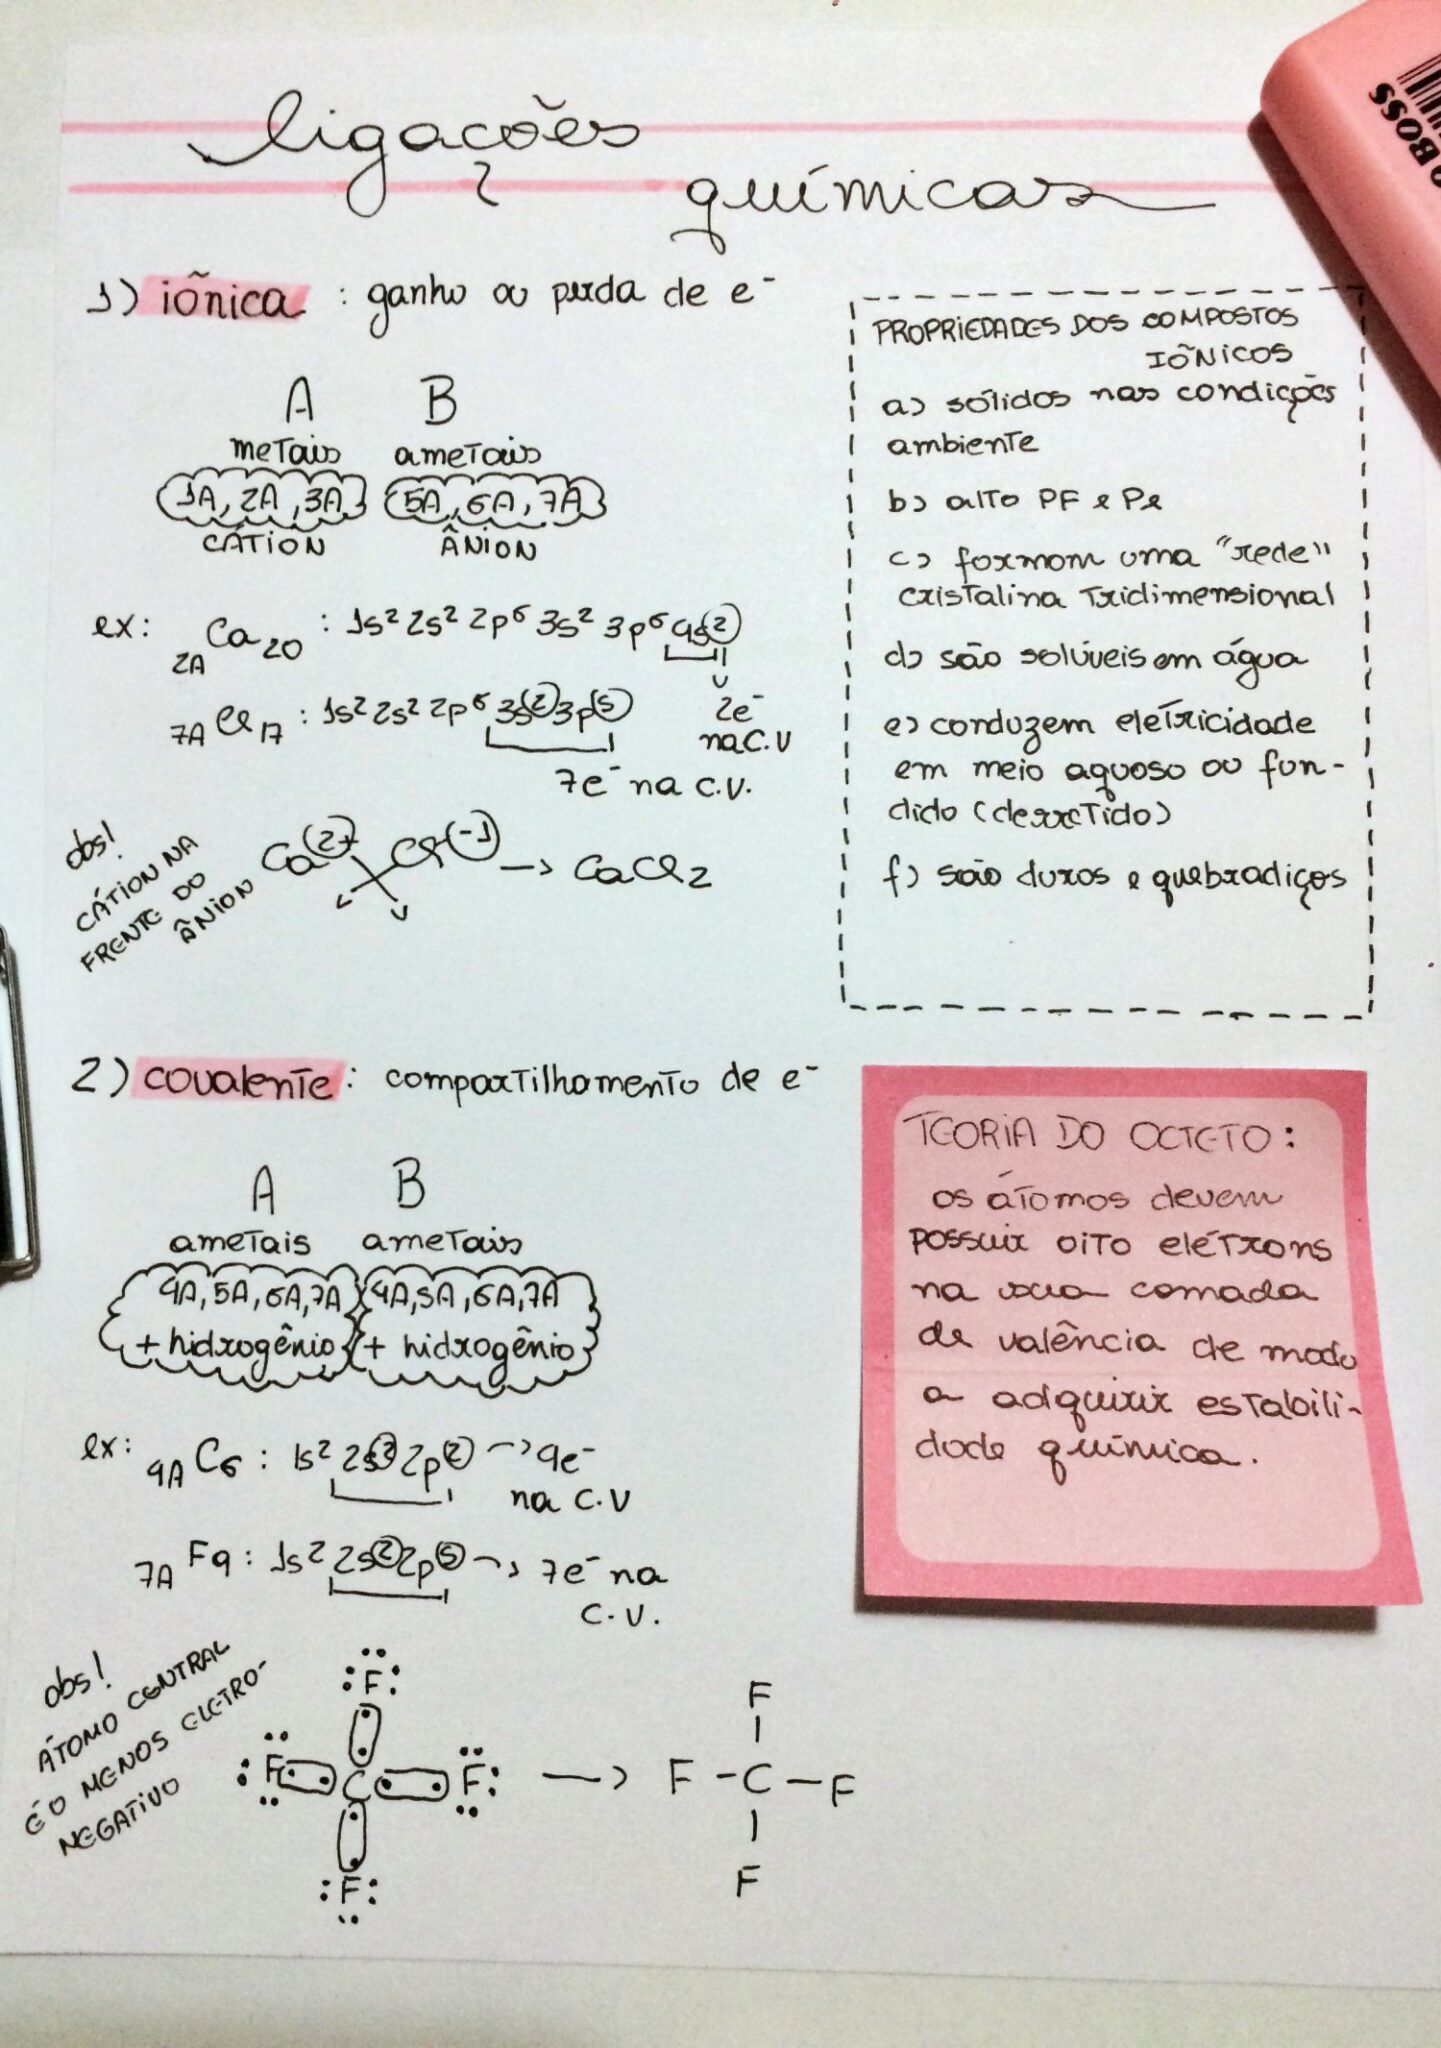 ligações
químicas
BOSS
1) iônica : ganho ou perda de e⁻
A B
metais ametais
1A, 2A, 3A 5A, 6A, 7A
CÁTION ÂNION
ex: 2A Ca 20 : 1s² 2s² 2p⁶ 3s² 3p⁶ 4s②
2e⁻
na C.V
7A Cl 17 : 1s² 2s² 2p⁶ 3s② 3p⑤
7e⁻ na C.V.
obs!
CÁTION NA
FRENTE DO
ÂNION
Ca 2+ Cl -1 → CaCl2
PROPRIEDADES DOS COMPOSTOS
IÔNICOS
a) sólidos nas condições
ambiente
b) alto PF e Pe
c) formam uma "rede"
cristalina tridimensional
d) são solúveis em água
e) conduzem eletricidade
em meio aquoso ou fun-
dido (derretido)
f) são duros e quebradiços
2) covalente : compartilhamento de e⁻
A B
ametais ametais
4A, 5A, 6A, 7A 4A, 5A, 6A, 7A
+ hidrogênio + hidrogênio
ex: 4A C6 : 1s² 2s② 2p② → 4e⁻
na C.V
7A F9 : 1s² 2s② 2p⑤ → 7e⁻ na
C.V.
obs!
ÁTOMO CENTRAL
É O MENOS ELETRO-
NEGATIVO
F
F C F
F
→
F
F - C - F
F
TEORIA DO OCTETO :
os átomos devem
possuir oito elétrons
na sua camada
de valência de modo
a adquirir estabili-
dade química.